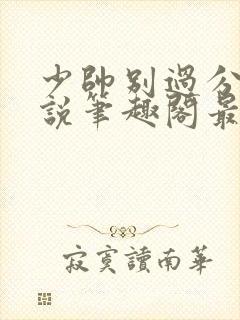 少帥別過分
說筆趣閣最
寂寞讀南華